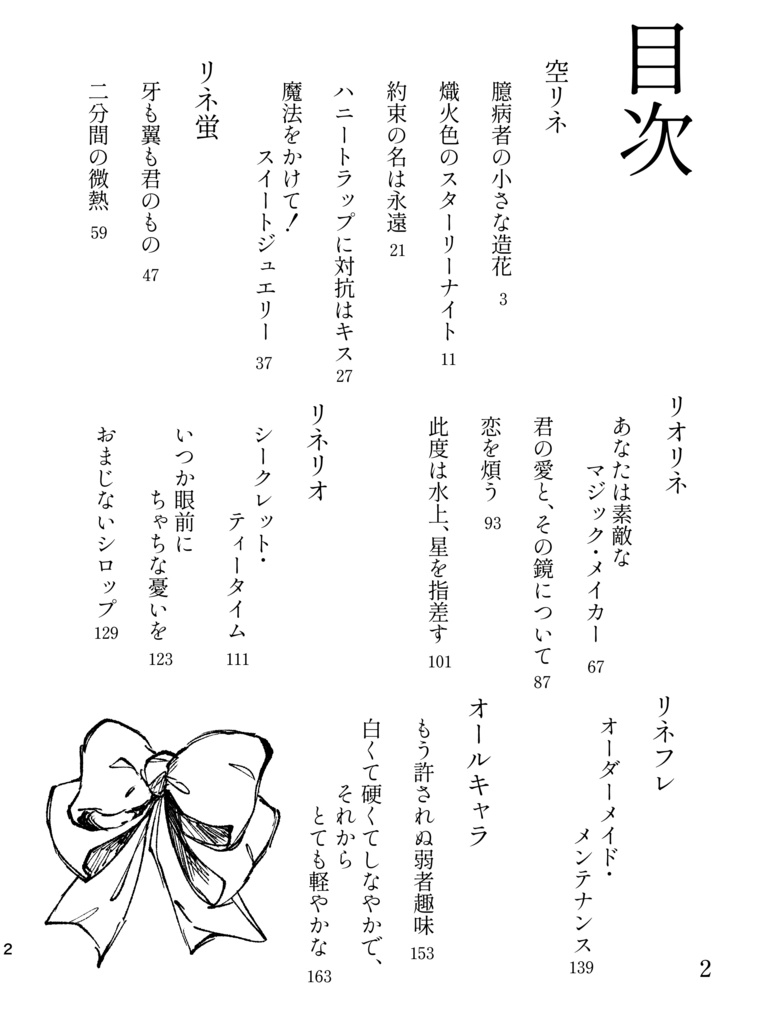 目次
空リネ
臆病者の小さな造花 3
熾火色のスターリーナイト 11
約束の名は永遠 21
ハニートラップに対抗はキス 27
魔法をかけて!
スイートジュエリー 37
リネ蛍
牙も翼も君のもの 47
二分間の微熱 59
リオリネ
あなたは素敵な
マジック・メイカー 67
君の愛と、その鏡について 87
恋を煩う 93
此度は水上、星を指差す 101
リネリオ
シークレット・
ティータイム 111
いつか眼前に
ちゃちな憂いを 123
おまじないシロップ 129
リネフレ
オーダーメイド・
メンテナンス 139
オールキャラ
もう許されぬ弱者趣味 153
白くて硬くてしなやかで、
それから
とても軽やかな 163
2
2